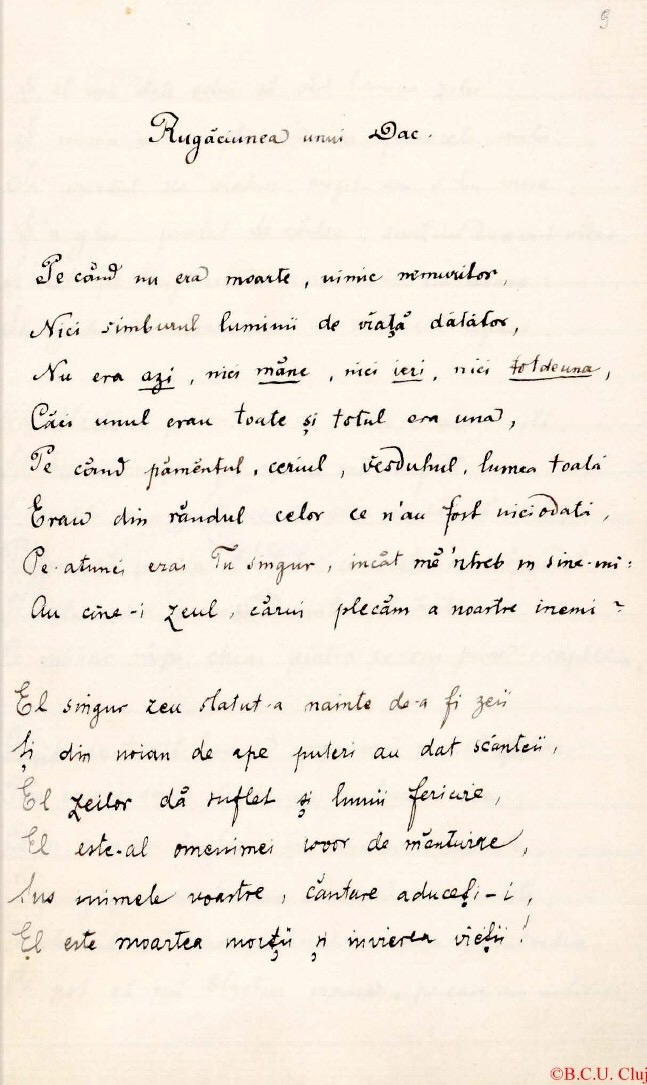 9
Rugăciunea unui Dac.
Pe când nu era moarte, nimic nemuritor,
Nici sîmburul luminii de viață dătător,
Nu era azi, nici mâne, nici ieri, nici totdeuna,
Căci unul erau toate și totul era una,
Pe când pământul, ceriul, vĕsduhul, lumea toată
Erau din rândul celor ce n'au fost niciodată,
Pe-atunci erai Tu singur, încât mĕ'ntreb în sine-mi:
Au cine-i zeul, cărui plecăm a noastre inemi?
El singur zeu stătut-a nainte de-a fi zeii
Și din noian de ape puteri au dat scânteii,
El zeilor dă suflet și lumii fericire,
El este-al omenimei isvor de mântuire,
Sus inimele voastre, cântare aduceți-i,
El este moartea morții și învierea vieții!
©B.C.U. Cluj